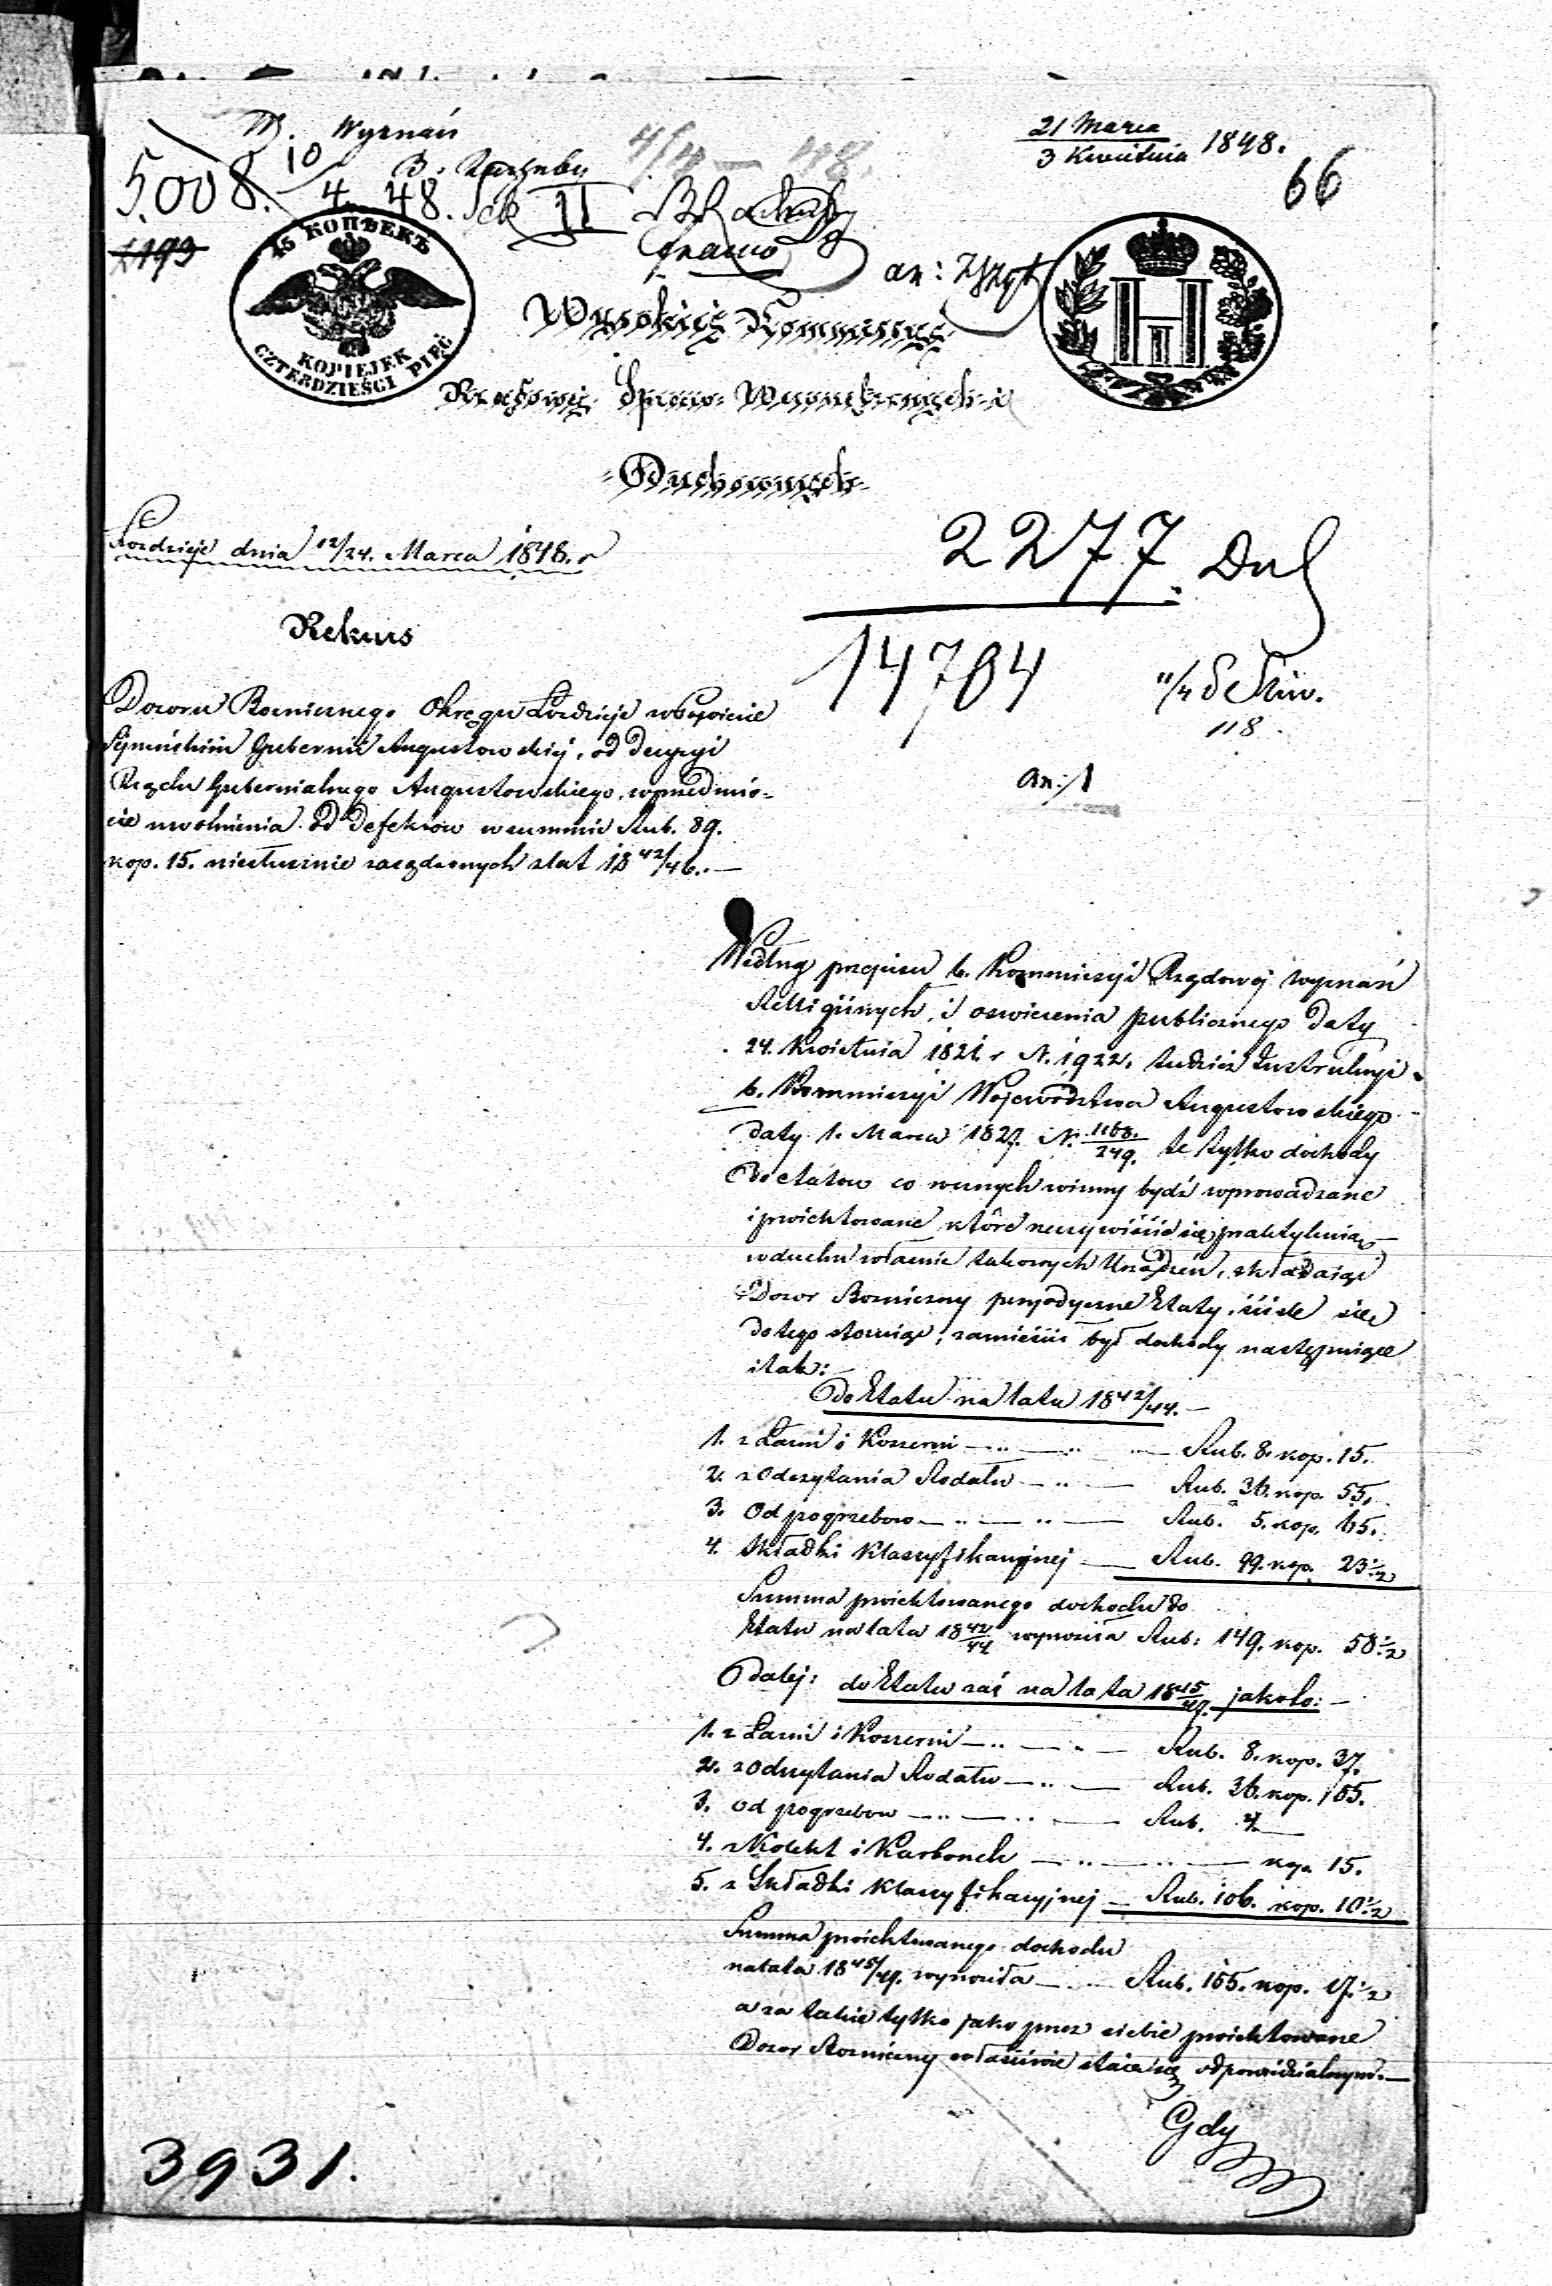 W. Wyznań
21 Marca / 3 Kwietnia 1848.
66
5.008. 10/4 48. Sek II
4/4 — 48.
1193
an: 2
45 КОПѢЕКЪ
KOPIEJEK
CZTERDZIEŚCI PIĘĆ
H I
Wysokiéj Kommissyi
Rządowéj Spraw Wewnętrznych i
Duchownych
Łozdzieje dnia 12/24. Marca 1848. r
2277. Dul
14704
11/4
118.
an: 1
Rekurs
Dozoru Bozniczego Okręgu Łozdzieje w Powiecie
Sejneńskim Gubernii Augustowskiéj, od decyzyi
Rządu Gubernialnego Augustowskiego, w przedmio-
cie uwolnienia od defektów w summie Rub. 89.
kop. 15. niesłusznie zarządzonych z lat 18 42/46. —
Według przepisu b. Kommissyi Rządowéj wyznań
Relligiinych, i oswiecenia publicznego daty
24. Kwietnia 1821. r N. 1922. tudzież Instrukcyi
b. Kommissyi Województwa Augustowskiego
daty 1. Marca 1827. N. 1168./249. te tylko dochody
do etatow co wernych winny bydź wprowadzane
i proiektowane, które rzeczywiście się praktykuią
w duchu właśnie takowych Urządzeń, składaiąc
Dozor Bozniczny peryodyczne Etaty, ściśle się
do tego stosuiąc, zamieścił był dochody następuiące
i tak:
do Etatu na lata 18 42/44. —
1. z Łaźni i Koszerni — Rub. 8. kop. 15.
2. z Odczytania Rodału — Rub. 36. kop. 55.
3. Od pogrzebow — Rub. 5. kop. 65.
4. Składki klassyfikacyjnej — Rub. 99. kop. 23 1/2
Summa proiektowanego dochodu do
Etatu na lata 18 42/44 wynosiła Rub: 149. kop. 58 1/2
Daléj: do Etatu zaś na lata 18 45/47. jakoto: —
1. z Łaźni i Koszerni — Rub. 8. kop. 37.
2. z Odczytania Rodału — Rub. 36. kop. 55.
3. od pogrzebow — Rub. 4. —
4. z Kolekt i Karbonek — kop. 15.
5. z Składki klassyfikacyjnej — Rub. 106. kop. 10 1/2
Summa proiektowanego dochodu
na lata 18 45/47. wynosiła — Rub. 155. kop. 17 1/2
a za takie tylko jako przez siebie proiektowane
Dozor Bozniczny właściwie staie się odpowiedzialnym. —
Gdy
3931.